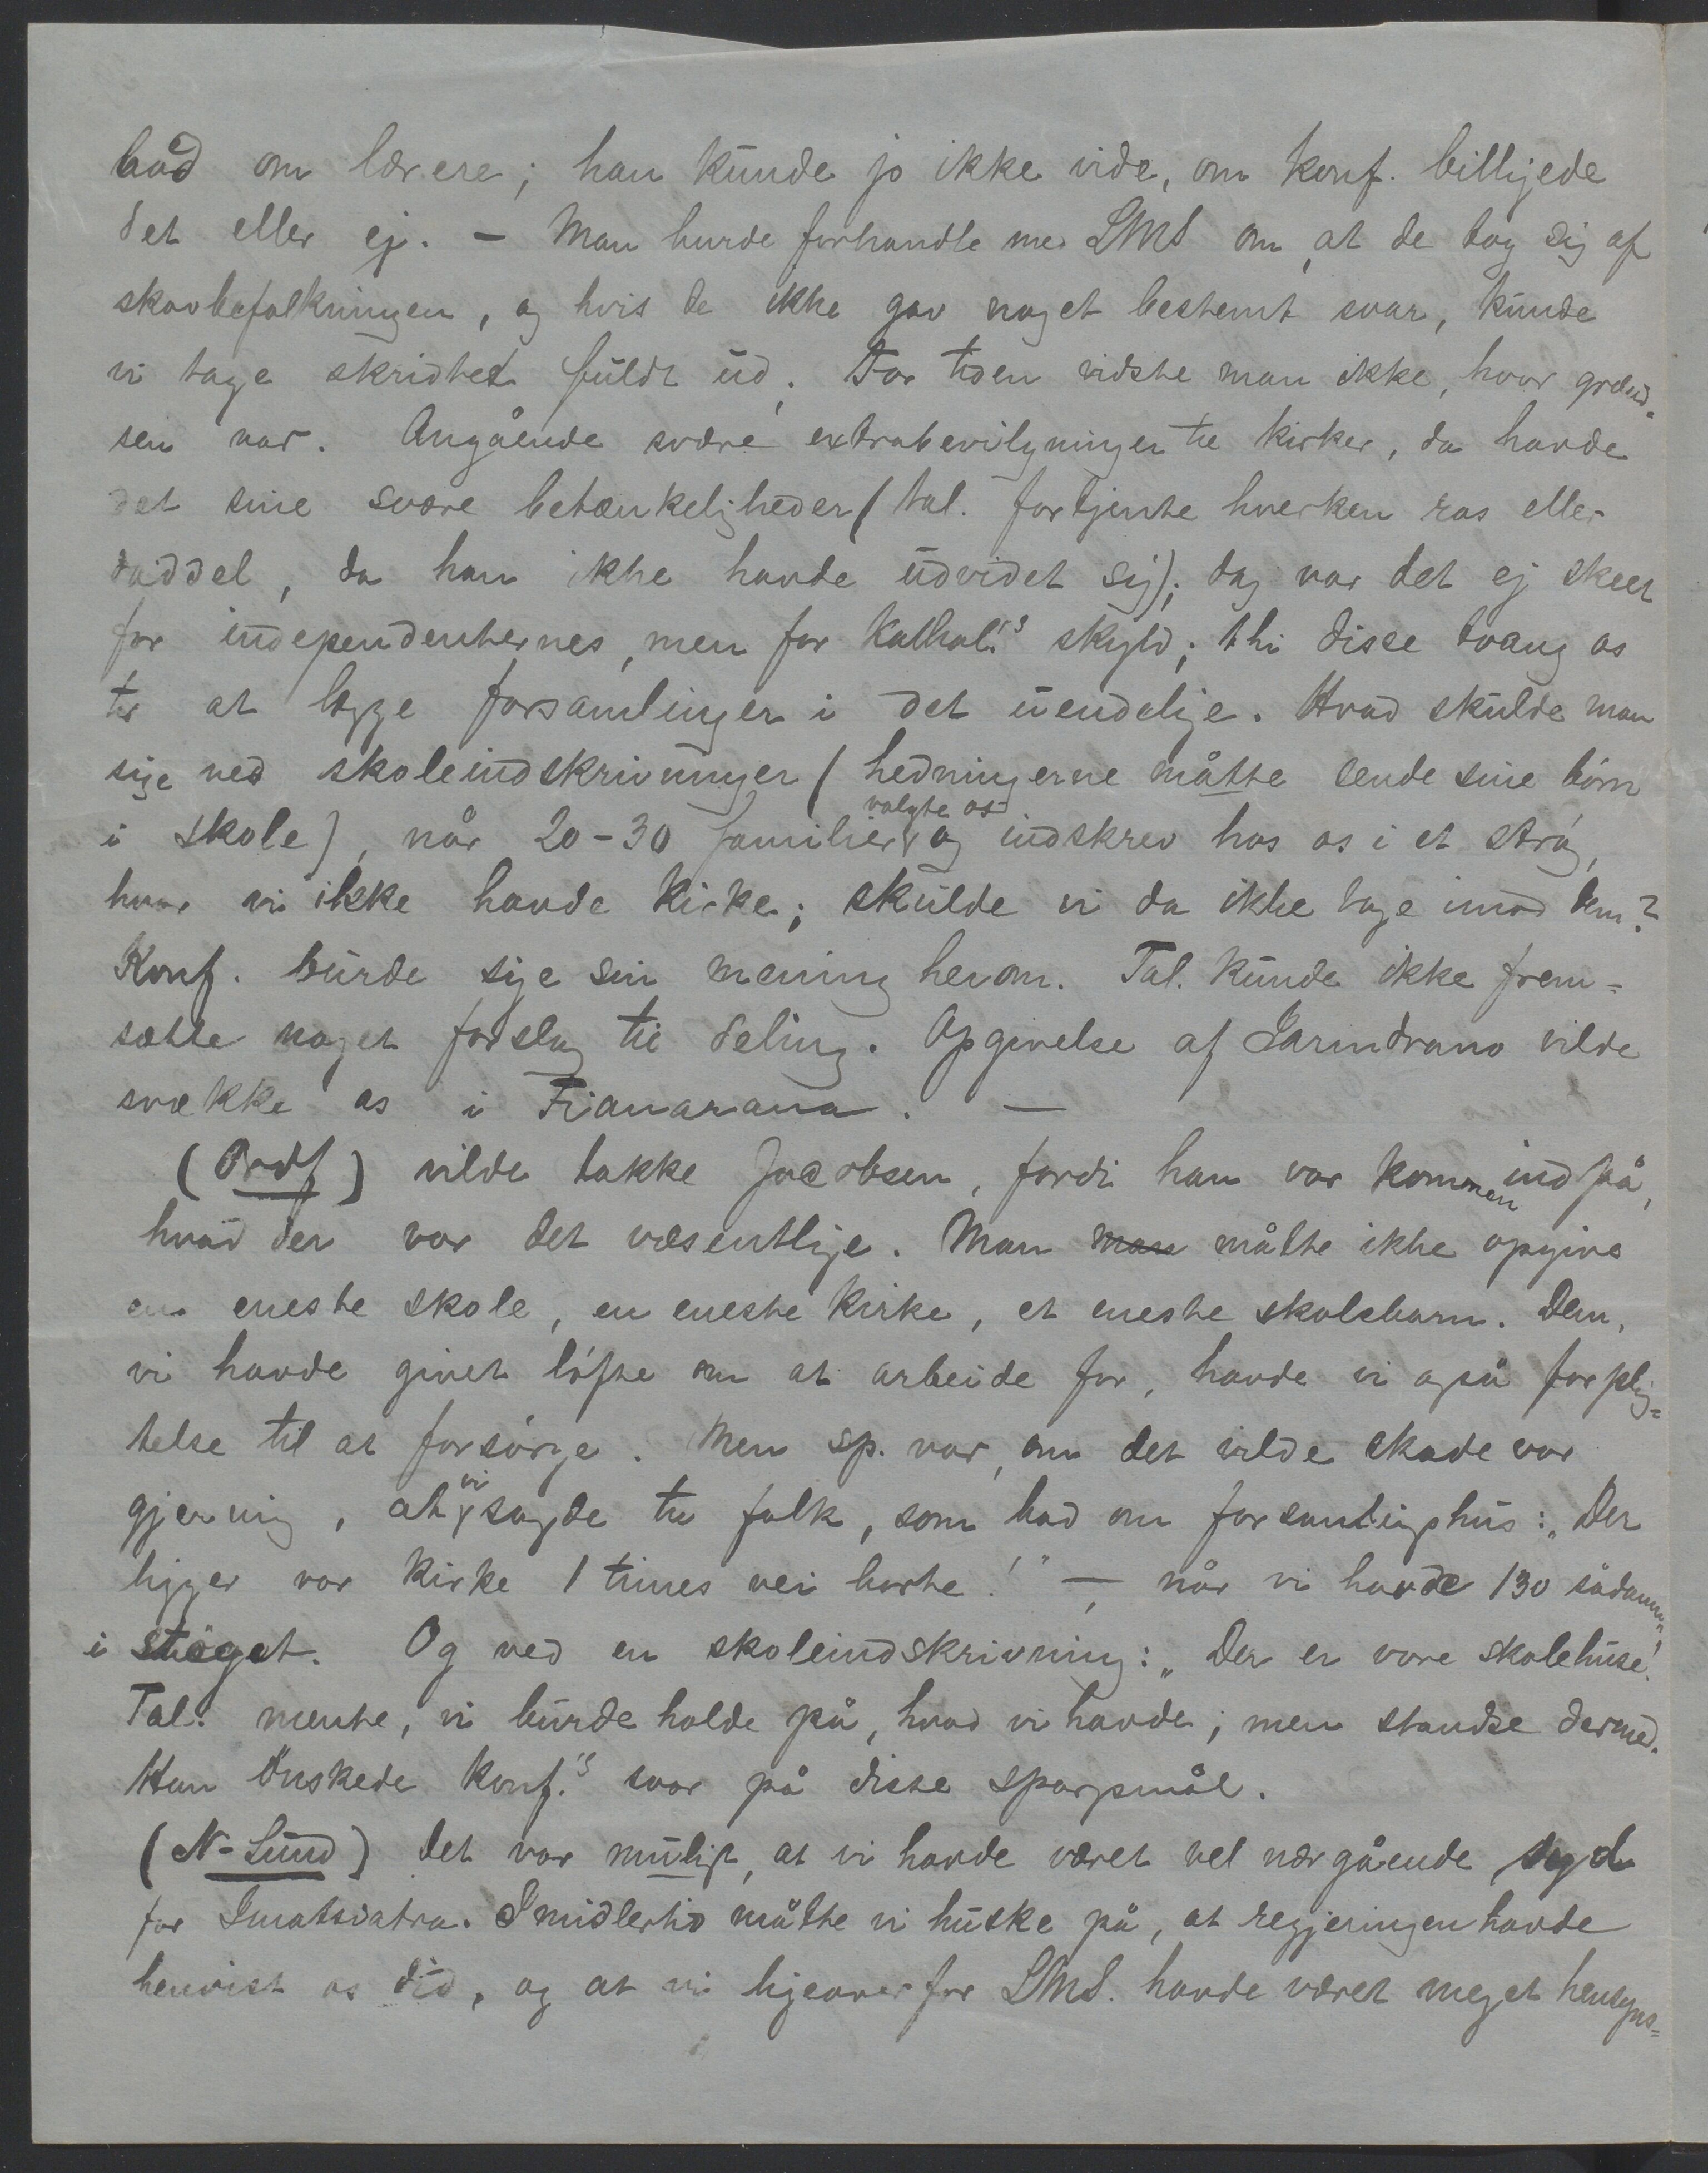 bad om lærere; han kunde jo ikke vide, om konf. billigede
det eller ej. – Man burde forhandle med LMS om, at de tog sig af
skovbefolkningen, og hvis de ikke gav noget bestemt svar, kunde
vi tage skridtet fuldt ud. For tiden vidste man ikke, hvor grænd-
sen var. Angående svære extrabevilgninger til kirker, da havde
det sine svære betænkeligheder (tal. fortjente hverken ros eller
daddel, da han ikke havde udvidet sig); dog var det ej skeet
for independenternes, men for Kathol.'s skyld; thi disse tvang os
til at lægge forsamlinger i det uendelige. Hvad skulde man
sige ved skoleindskrivninger (hedningerne måtte sende sine børn
i skole), når 20-30 familier valgte os og indskrev hos os i et strøg,
hvor vi ikke havde kirke; skulde vi da ikke tage imod dem?
Konf. burde sige sin mening herom. Tal. kunde ikke frem-
sætte noget forslag til deling. Opgivelse af Iarindrano vilde
svække os i Fianarana. –
(Ordf) vilde takke Jacobsen, fordi han var kommen ind på,
hvad der var det væsentlige. Man man måtte ikke opgive
en eneste skole, en eneste kirke, et eneste skolebarn. Dem,
vi havde givet løfte om at arbeide for, havde vi også forplig-
telse til at forsørge. Men sp. var, om det vilde skade vor
gjerning, at vi sagde til folk, som bad om forsamlingshus: "Der
ligger vor kirke 1 times vei borte!" –, når vi havde 130 sådanne
i strøget. Og ved en skoleindskrivning: "Der er vore skolehuse!"
Tal. mente, vi burde holde på, hvad vi havde; men standse dermed.
Han ønskede konf.'s svar på disse spørgsmål.
(N-Lund) Det var muligt, at vi havde været vel nærgående syd
for Imatsiatra. Imidlertid måtte vi huske på, at regjeringen havde
henvist os did, og at vi ligeoverfor LMS. havde været meget hensyns-